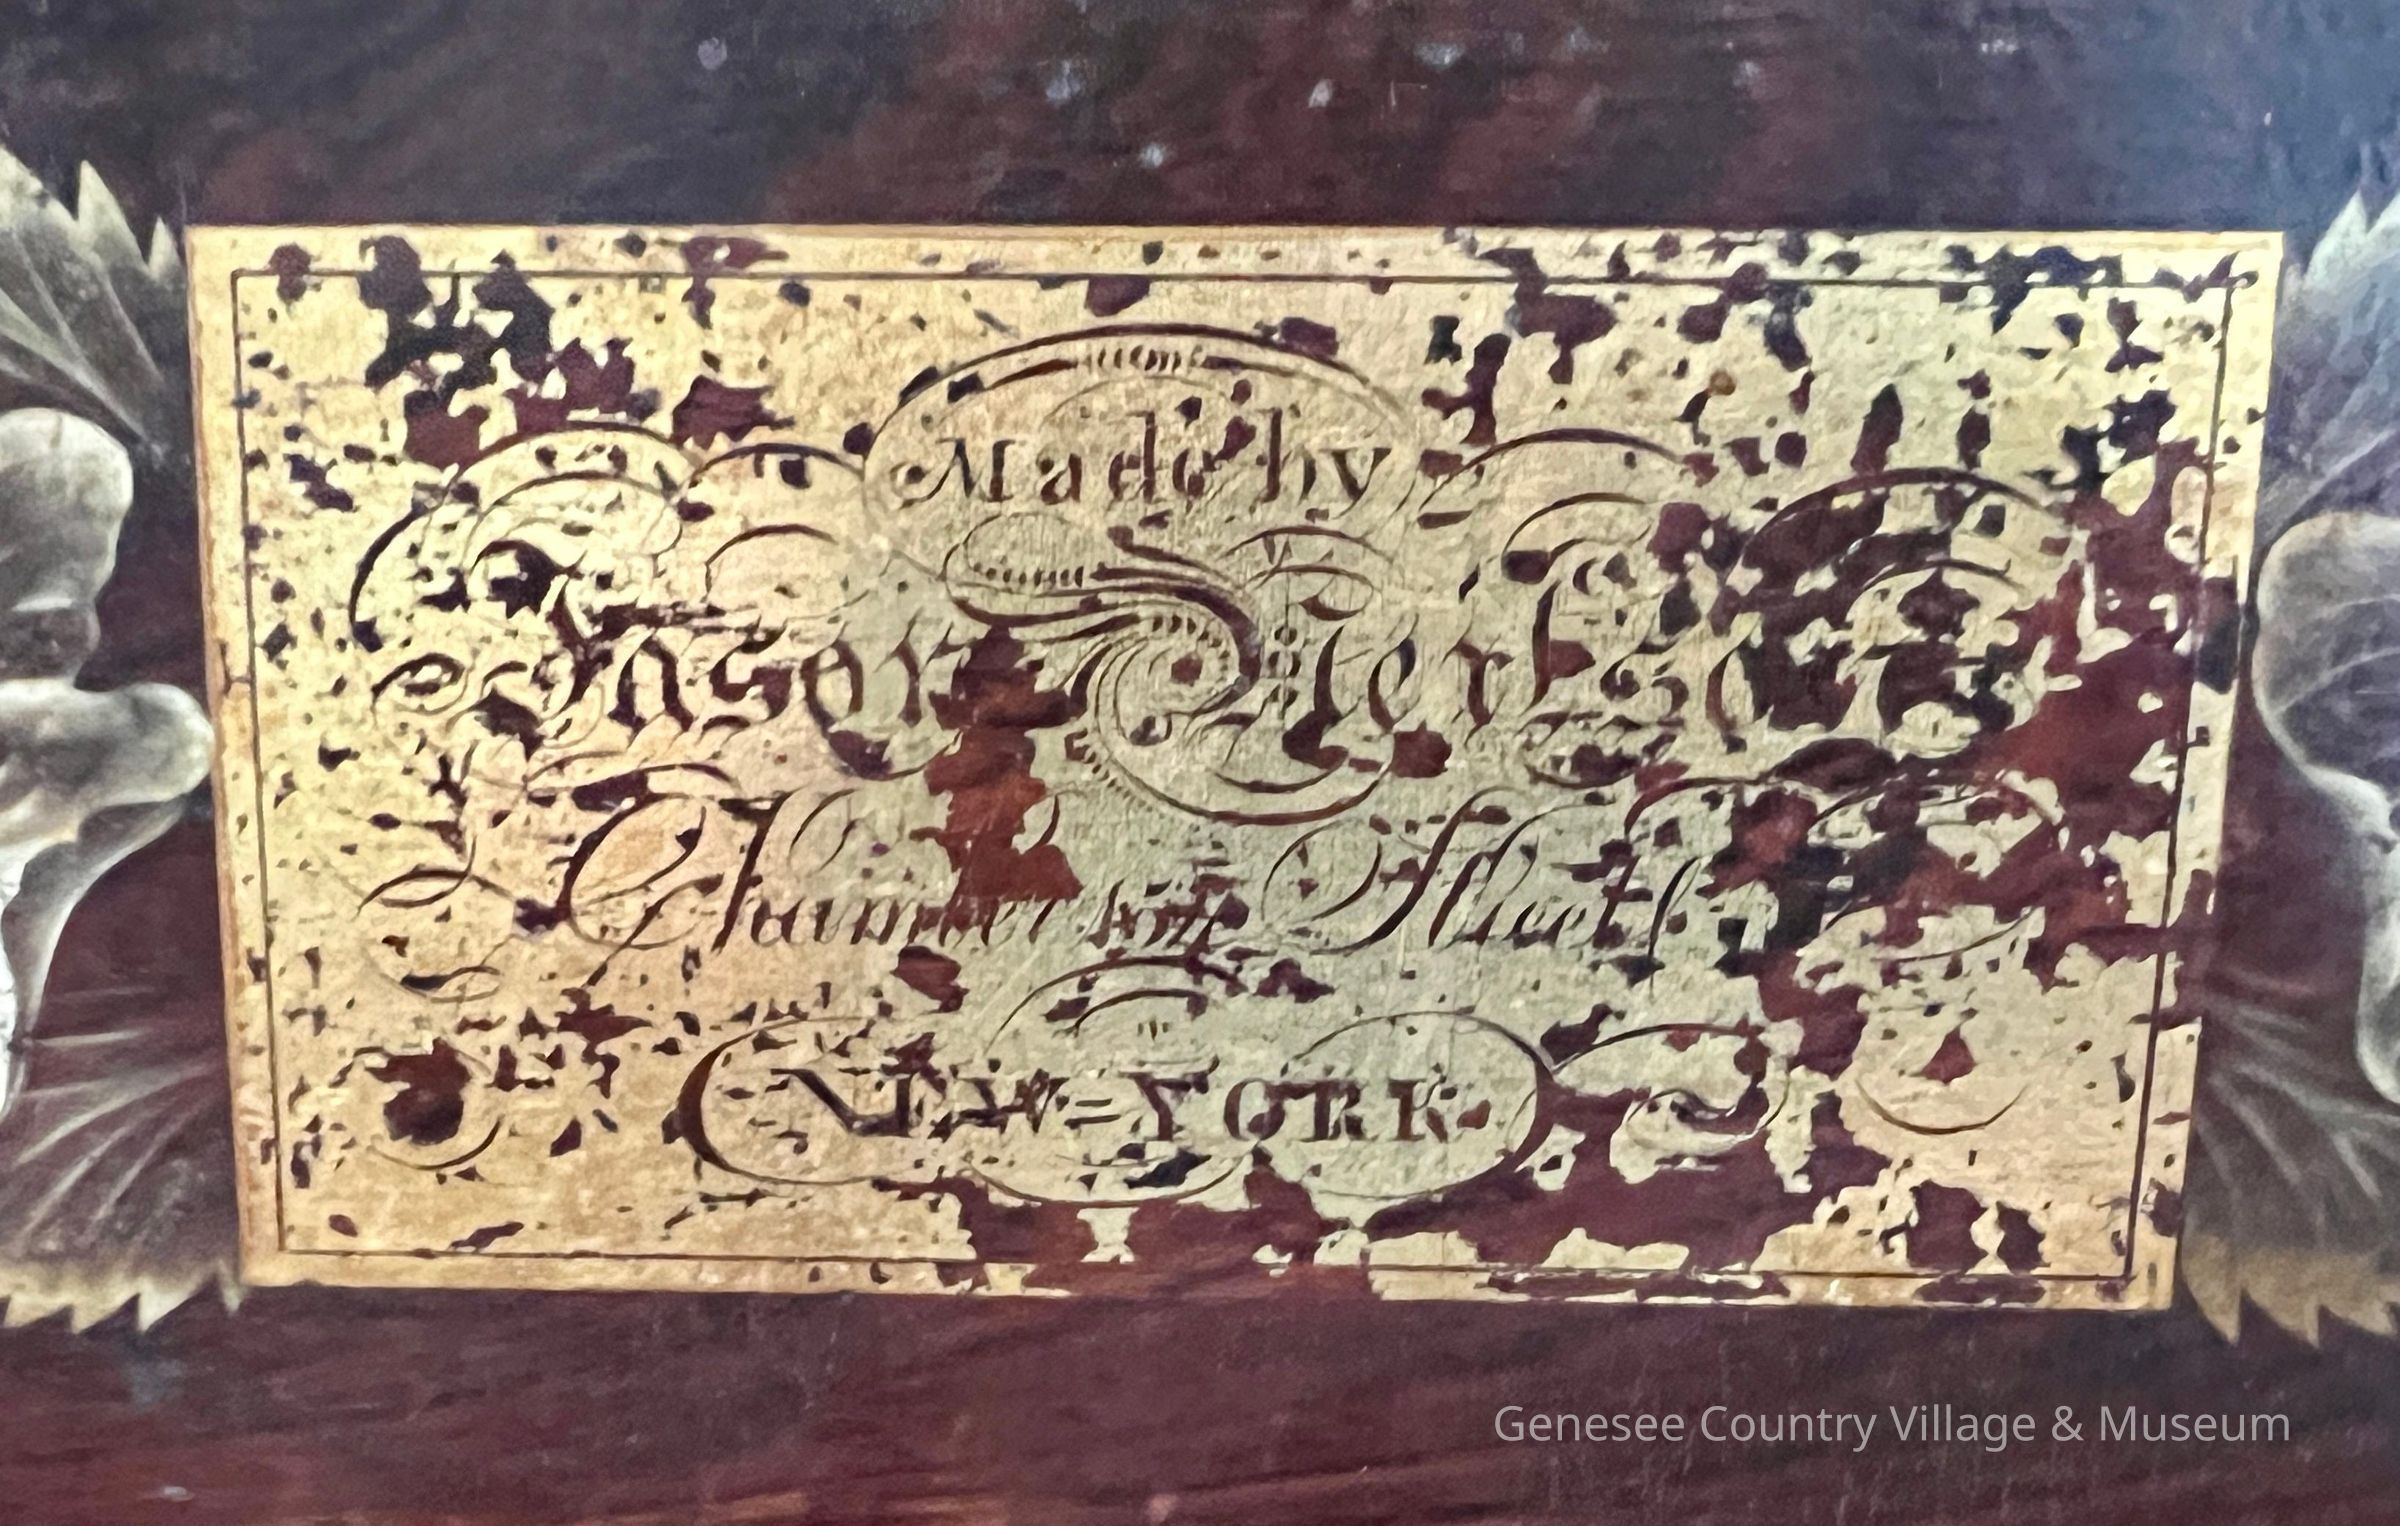 Made by
Jason
Chamber Street
NEW=YORK
Genesee Country Village & Museum